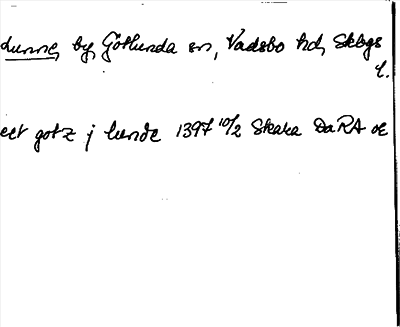 Lunne, by, Götlunda sn, Vadsbo hd, Skbgs
l.
ett gotz j lunde 1397 10/2 Skara DaRA or